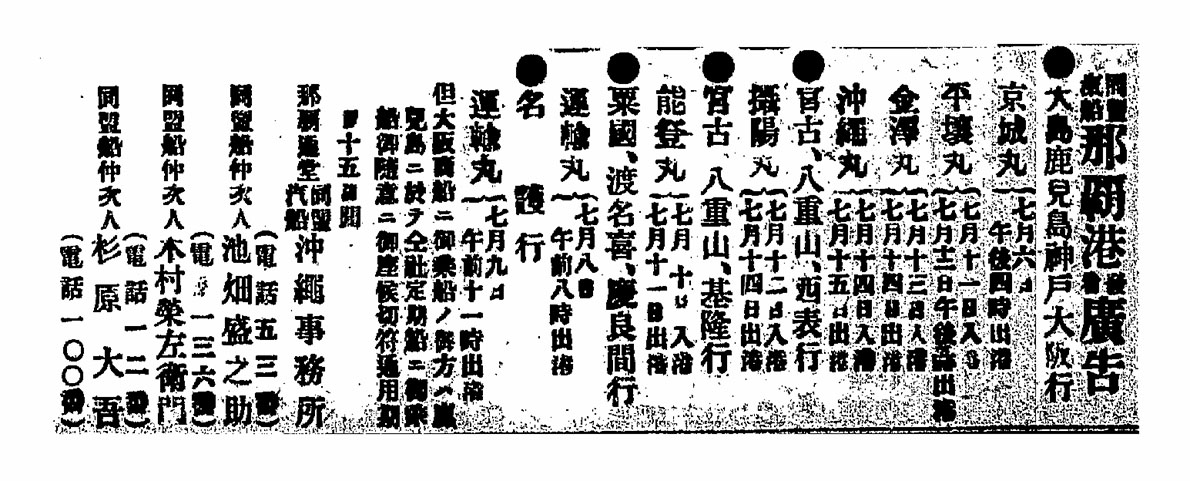 同盟汽船那覇港發着廣告
●大島鹿兒島神戸大阪行
京城丸 七月六日 午後四時出港
平壤丸 七月十一日入港 七月十二日午後 出港
金澤丸 七月十三日入港 七月十四日出港
沖繩丸 七月十四日入港 七月十五日出港
●宮古、八重山、西表行
攝陽丸 七月十二日入港 七月十四日出港
●宮古、八重山、基隆行
能登丸 七月十日入港 七月十一日出港
●粟國、渡名喜、慶良間行
運輸丸 七月八日 午前八時出港
●名護行
運輸丸 七月九日 午前十一時出港
但大阪商船ニ御乘船ノ御方ハ鹿
兒島ニ於テ仝社定期船ニ御乘
船御隨意ニ御座候切符通用期
十五日間
那覇通堂 同盟汽船 沖繩事務所
(電話五三番)
同盟船仲次人 池畑盛之助
(電話一三六番)
同盟船仲次人 木村榮左衛門
(電話一二番)
同盟船仲次人 杉原大吾
(電話一〇〇番)